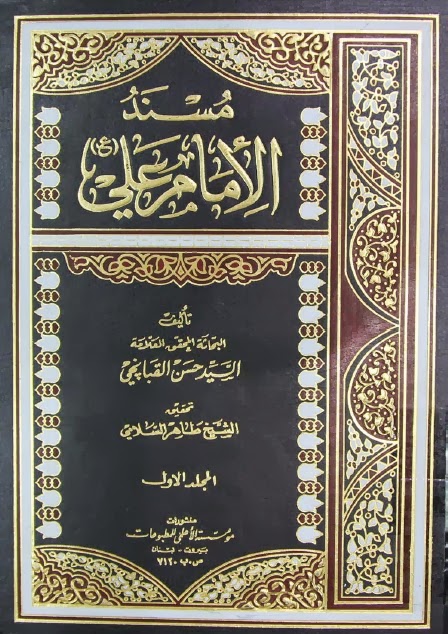 مُسْنَدُ
الإمَام عَلي (ع)
تأليف
البحاثة المحقق العلامة
السَّيّد حسَن القبَانجي
تحقيق
الشيخ طاهر السلامي
المجلد الاول
منشورات
مؤسسة الأعلمي للمطبوعات
بيروت - لبنان
ص.ب ٧١٢٠